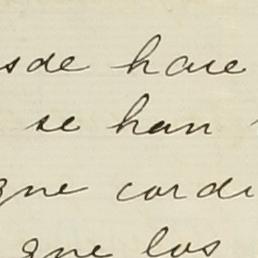 sde hace
se han
que cordi
que los